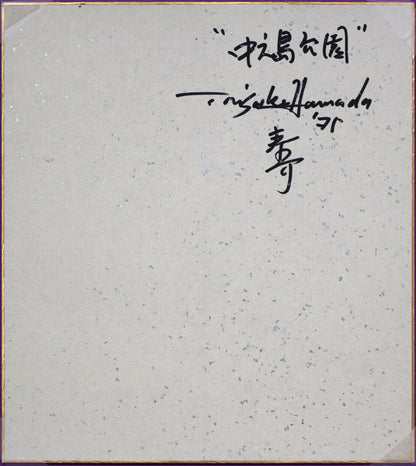 "中之島公園"
Taisuke Hamada
'71
寿